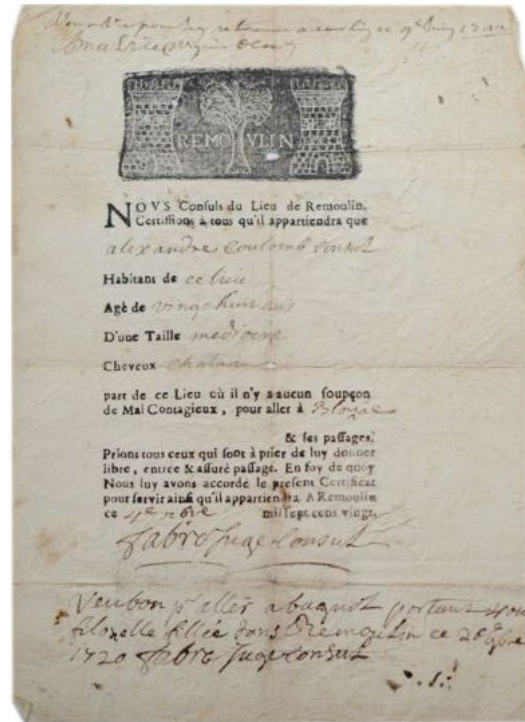 REMOVLIN
NOVS Consuls du Lieu de Remoulin,
Certifions à tous qu'il appartiendra que
alexandre coulomb consul
Habitant de ce lieu
Agè de vingt huit ans
D'une Taille mediocre
Cheveux chatain
part de ce Lieu où il n'y a aucun soupçon
de Mal Contagieux, pour aller à
& ses passages,
Prions tous ceux qui sont à prier de luy donner
libre, entrée & assuré passage. En foy de quoy
Nous luy avons accordé le present Certificat
pour servir ainsi qu'il appartiendra. A Remoulin
ce 4e mil sept cens vingt
fabre Juge Consul
Veu bon pr aller a portant
filozelle fillée dans Remoulin ce
1720 fabre Juge consul